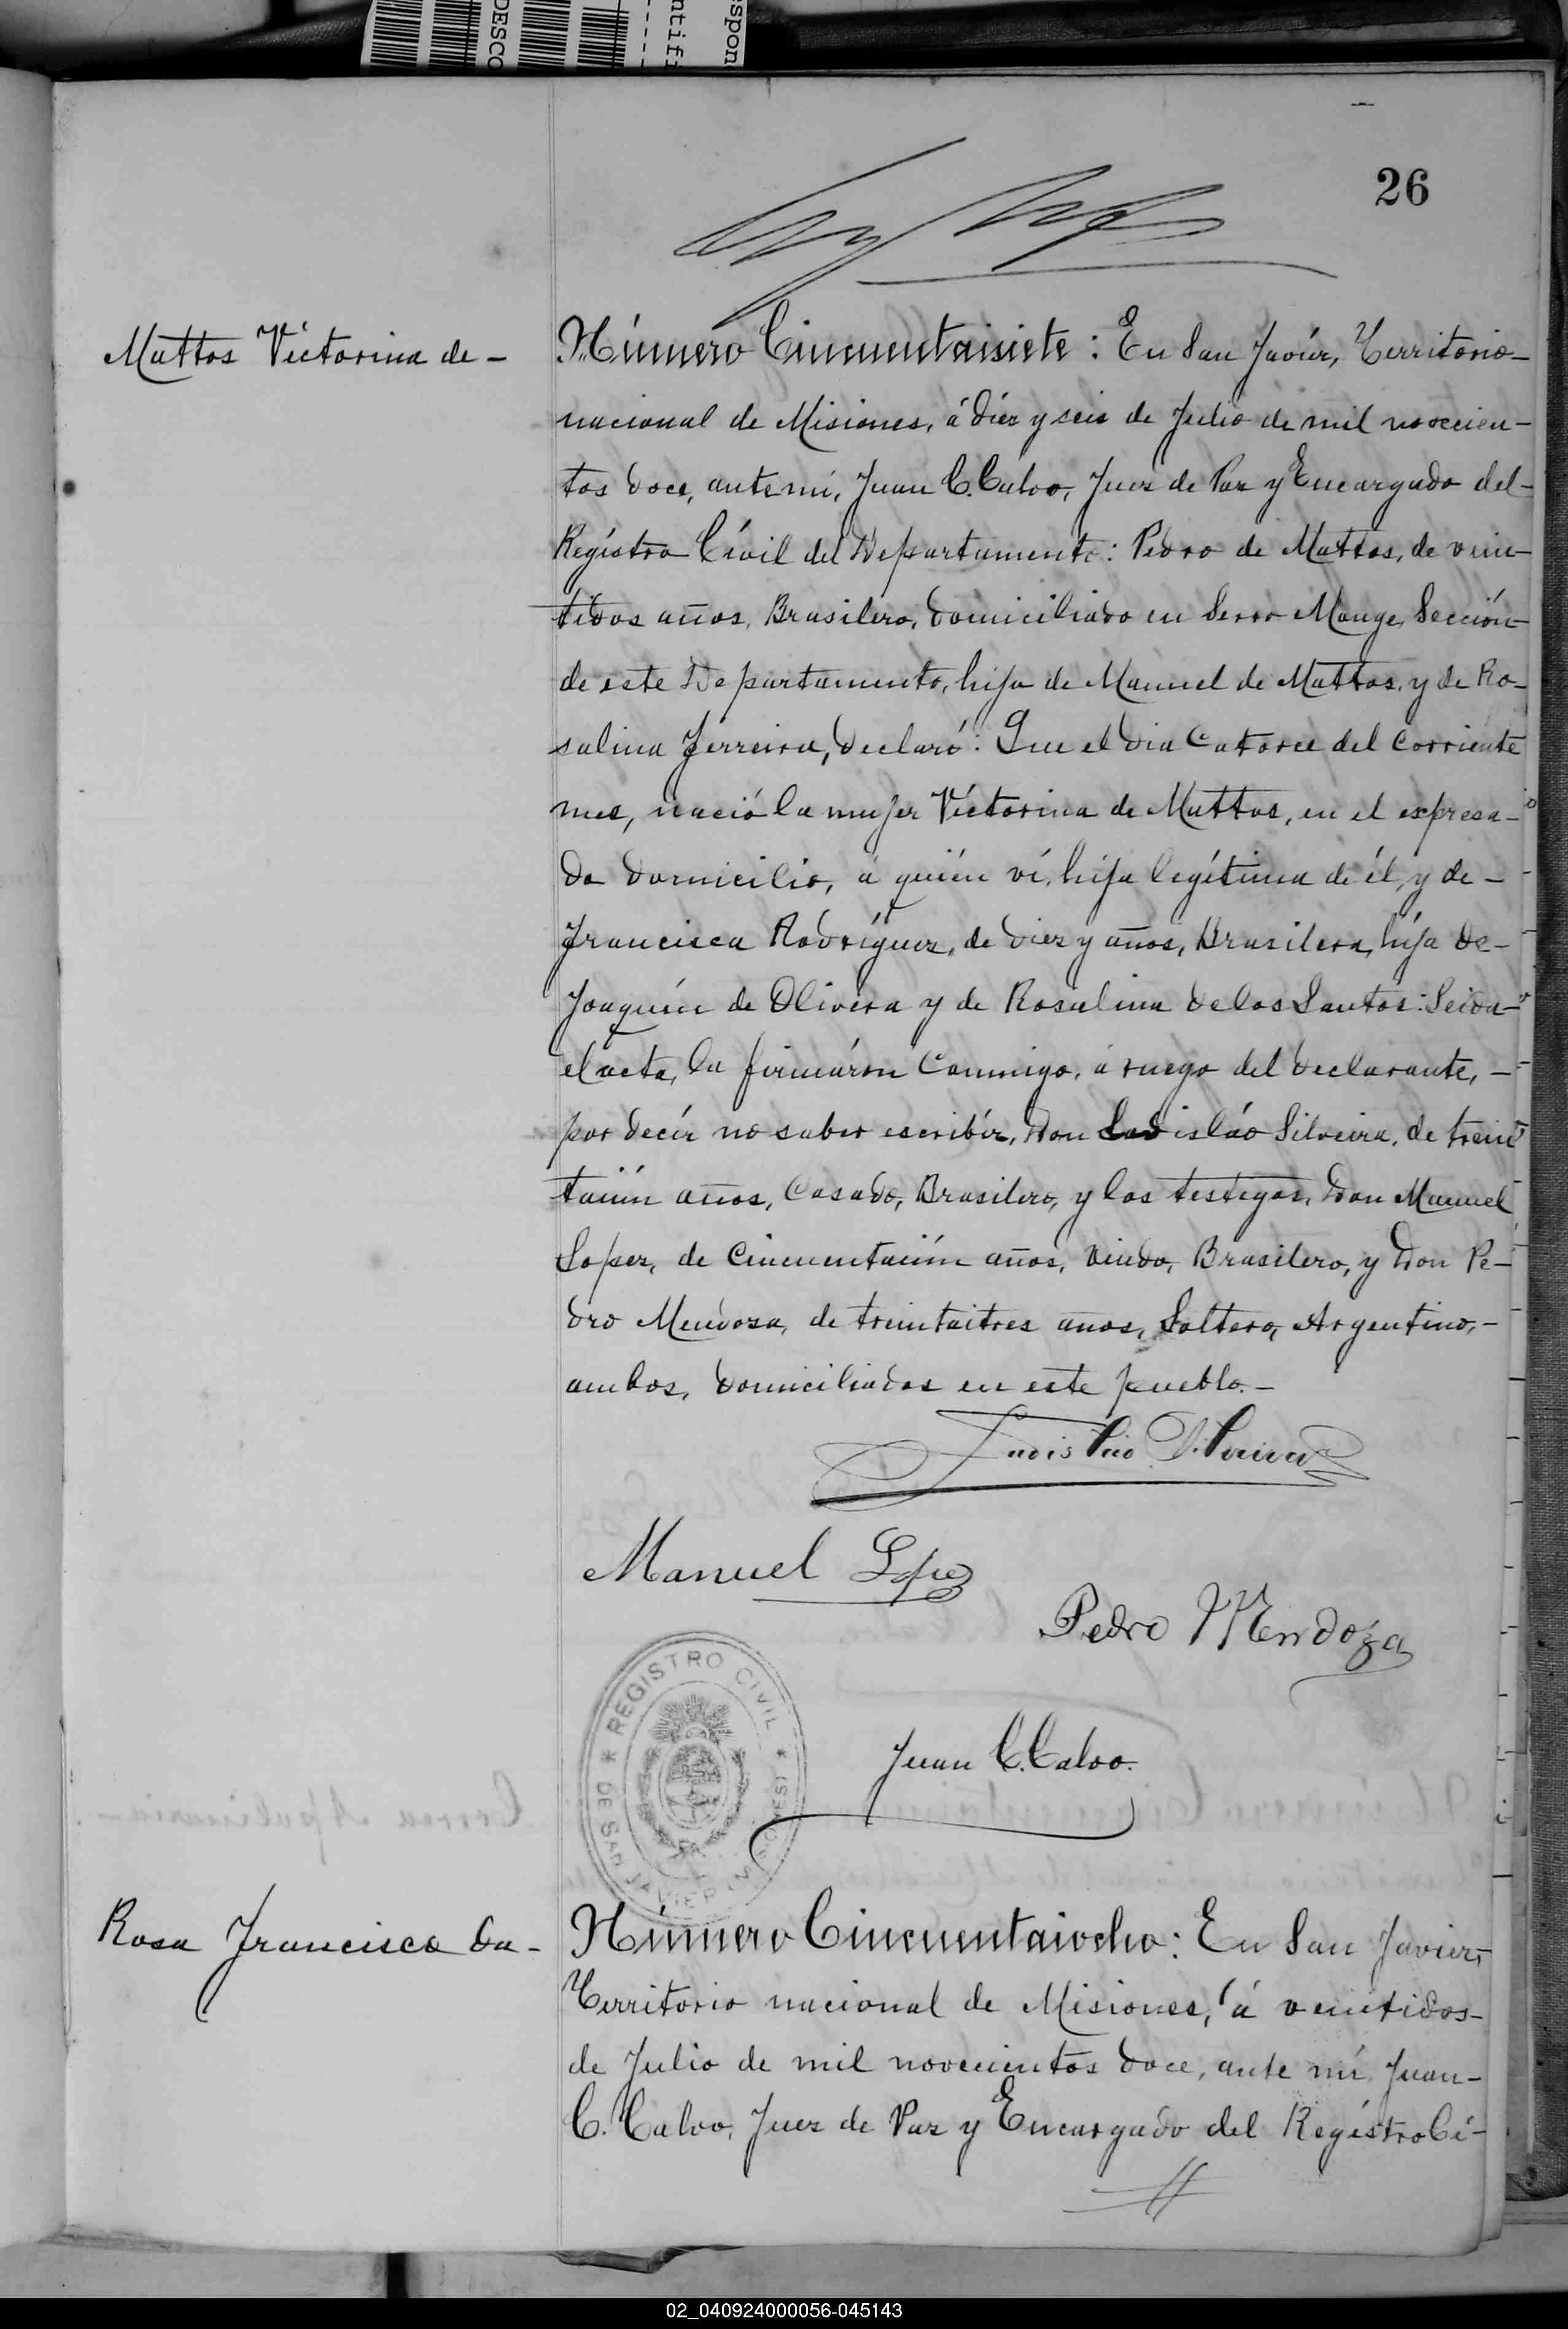 DESCO
ntifi
spon
26
Mattos Victorina de-
Número Cincuentaisiete: En San Javiér, Territorio-
nacional de Misiones, á diéz y seis de Julio de mil novecien-
tos doce, ante mi, Juan C. Calvo, Juez de Paz y Encargado del-
Registro Civil del Departamento: Pedro de Mattos, de vein-
tidos años, Brasilero, domiciliado en Serro Monge, Sección-
de este Departamento, hijo de Manuel de Mattos, y de Ro-
salina Ferreira, declaró: Que el dia catorce del corriente
mes, nació la mujer Victorina de Mattos, en el expresa-
do domicilio, á quién ví, hija legítima de él, y de-
Francisca Rodríguez, de diez y años, Brasilera, hija de-
Joaquín de Olivera y de Rosalina de los Santos: Leida-
el acta, la firmáron conmigo, á ruego del declarante, -
por decír no saber escribír, Don Ladisláo Silveira, de trein
taiún años, Casado, Brasilero, y los testigos, Don Manuel
Lopez, de cincuentaiún años, viudo, Brasilero, y Don Pe-
dro Mendoza, de treintaitres años, Soltero, Argentino,-
ambos, domiciliados en este pueblo.-
Ladislao Silveira
Manuel Lopez
Pedro Mendoza
REGISTRO CIVIL
DE SAN JAVIER (MISIONES)
Juan C. Calvo.
Rosa Francisca da-
Número Cincuentaiocho: En San Javier,-
Territorio nacional de Misiones, á veintidos-
de Julio de mil novecientos doce, ante mí, Juan-
C. Calvo, Juez de Paz y Encargado del Registro Cí-
02_040924000056-045143